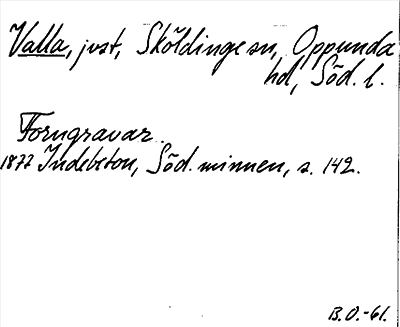 Valla, jvst, Sköldinge sn, Oppunda
hd, Söd. l.
Forngravar.
1877 Indebetou, Söd. minnen, s. 142.
B.O.-61.